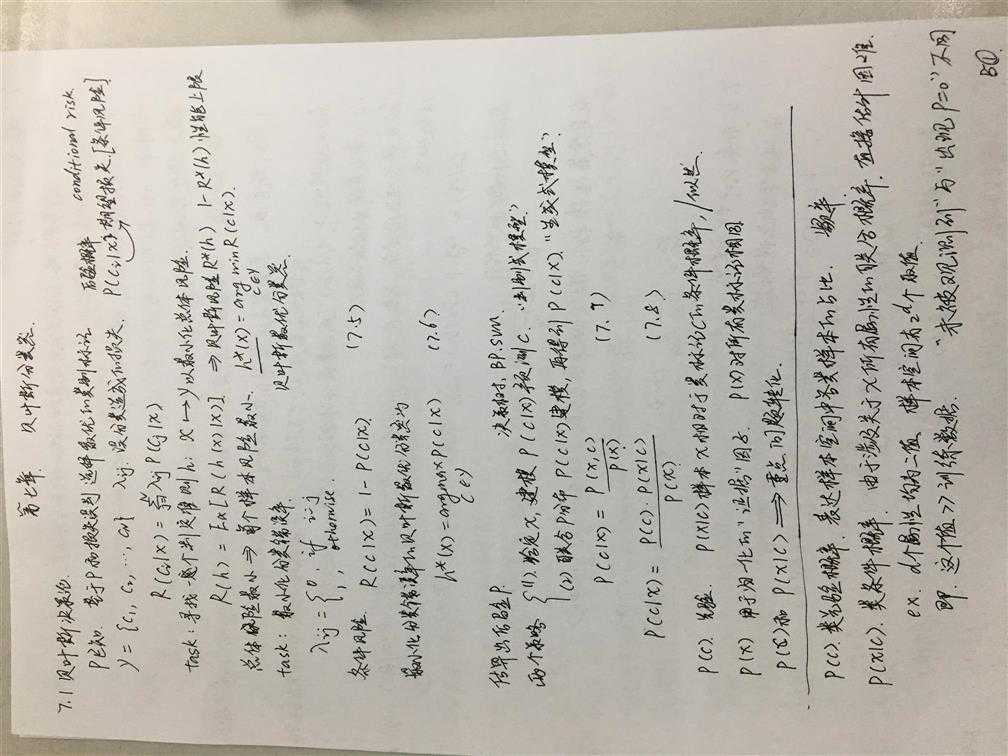 第七章 贝叶斯分类器.
7.1 贝叶斯决策论
P已知. 基于P和损失误判 选择最优的类别标记 后验概率 conditional risk
y = {c₁, c₂, ..., cN} λij. 误分类造成的损失. P(cᵢ|x) 期望损失. [条件风险]
R(cᵢ|x) = Σ λij P(cj|x)
task: 寻找一个判定准则 h: x ↦ y 以最小化总体风险.
R(h) = Ex[R(h(x)|x)] ⇒ 贝叶斯风险R*(h) 1-R*(h) 性能上限
总体风险最小 ⇒ 每个样本风险最小. h*(x) = arg min R(c|x).
c∈y
task: 最小化分类错误率. 贝叶斯最优分类器
λij = {0, if i=j
1, otherwise.
条件风险. R(c|x) = 1 - P(c|x) (7.5)
最小化分类错误率的贝叶斯最优分类器为
h*(x) = argmax P(c|x) (7.6)
c∈y
估算出后验P
两个策略 {(1). 给定x, 建模 P(c|x) 预测c. 决策树, BP, SVM. "判别式模型"
(2) 联合P分布 P(x,c)建模, 再得到 P(c|x). "生成式模型"
P(c|x) = P(x,c) / P(x) (7.7)
P(c|x) = P(c)·P(x|c) / P(x) (7.8)
P(c). 先验 P(x|c) 样本x相对于类标记c的条件概率, /似然
P(x) 用于归一化的"证据"因子. P(x)对所有类标记相同
P(c)和 P(x|c) ⟹ 重点 问题转化.
P(c). 类先验概率. 表达样本空间中各类样本的占比. 频率.
P(x|c). 类条件概率. 由于涉及关于x所有属性的联合概率, 直接估计困难.
ex. d个属性均为二值, 样本空间有2^d个取值
即. 这个值 >> 训练数据. "未被观测到"与"出现P=0"不同
B①